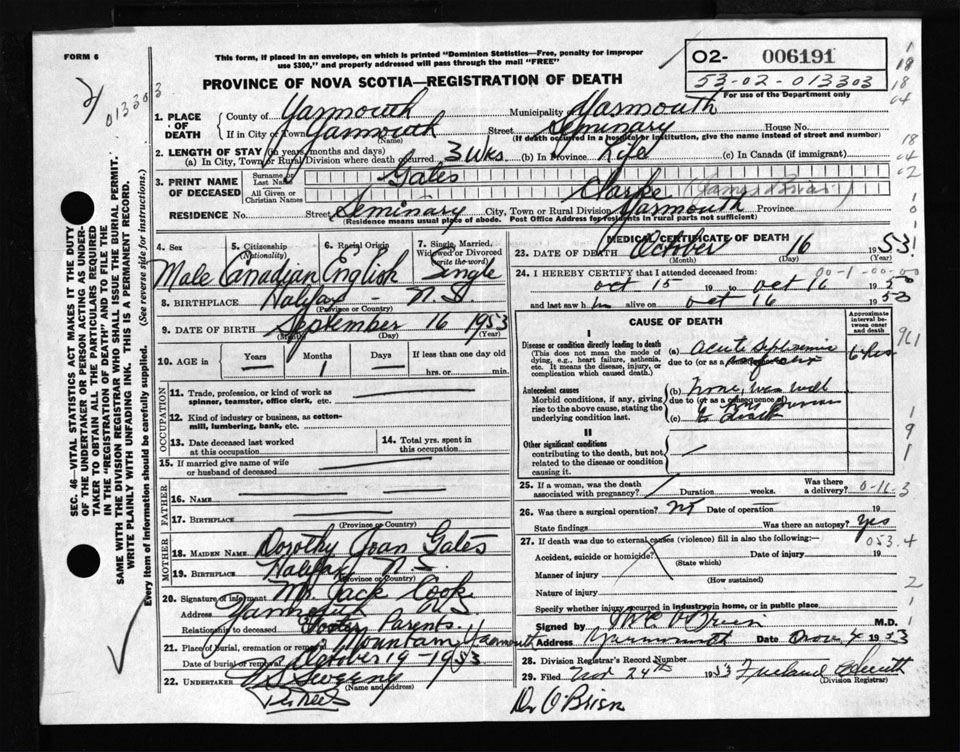 FORM 6
This form, if placed in an envelope, on which is printed "Dominion Statistics—Free, penalty for improper
use $300," and properly addressed will pass through the mail "FREE"
02- 006191
53-02-013303
For use of the Department only
PROVINCE OF NOVA SCOTIA—REGISTRATION OF DEATH
1. PLACE OF DEATH
County of Yarmouth Municipality of Yarmouth
If in City or Town Yarmouth (Name) Street Seminary House No.
(If death occurred in a hospital or institution, give the name instead of street and number)
2. LENGTH OF STAY (in years, months and days)
(a) In City, Town or Rural Division where death occurred 3 Wks. (b) In Province Life (c) In Canada (if immigrant)
3. PRINT NAME OF DECEASED
Surname or Last Name Gates
All Given or Christian Names Clarke (James Brian)
RESIDENCE No. Street Seminary City, Town or Rural Division Yarmouth Province
(Residence means usual place of abode. Post Office Address for residents in rural parts not sufficient)
4. Sex Male
5. Citizenship (Nationality) Canadian
6. Racial Origin English
7. Single, Married, Widowed or Divorced (write the word) Single
8. BIRTHPLACE Halifax - N.S.
(Province or Country)
9. DATE OF BIRTH September 16 1953
(Month) (Day) (Year)
10. AGE in Years Months Days If less than one day old
1
hrs. or min.
OCCUPATION
11. Trade, profession, or kind of work as
spinner, teamster, office clerk, etc.
12. Kind of industry or business, as cotton-
mill, lumbering, bank, etc.
13. Date deceased last worked
at this occupation
14. Total yrs. spent in
this occupation
15. If married give name of wife
or husband of deceased
FATHER
16. NAME
17. BIRTHPLACE
(Province or Country)
MOTHER
18. MAIDEN NAME Dorothy Joan Gates
19. BIRTHPLACE Halifax N.S.
(Province or Country)
20. Signature of informant Mr. Jack Cook
Address Yarmouth N.S.
Relationship to deceased Foster Parents
21. Place of burial, cremation or removal Mountain Yarmouth
Date of burial or removal October 19-1953
22. UNDERTAKER Sweeny
(Name and address)
MEDICAL CERTIFICATE OF DEATH
23. DATE OF DEATH October 16 1953
(Month) (Day) (Year)
24. I HEREBY CERTIFY that I attended deceased from:
00-1-00-00
Oct 15 19 to Oct 16 19
and last saw h alive on Oct 16 1953
CAUSE OF DEATH
Approximate interval between onset and death
I
Disease or condition directly leading to death
(This does not mean the mode of dying, e.g., heart failure, asthenia, etc. It means the disease, injury, or complication which caused death.)
(a) acute septicemia
due to (or as a
Antecedent causes
Morbid conditions, if any, giving rise to the above cause, stating the underlying condition last.
(b) None, was well
due to (or as a consequence of)
(c)
II
Other significant conditions
contributing to the death, but not related to the disease or condition causing it.
25. If a woman, was the death
associated with pregnancy? Duration weeks. Was there a delivery? 0-11-3
26. Was there a surgical operation? no Date of operation 19
State findings Was there an autopsy? Yes
27. If death was due to external causes (violence) fill in also the following:-
053.4
Accident, suicide or homicide? Date of injury 19
(State which)
Manner of injury
(How sustained)
Nature of injury
Specify whether injury occurred in industry, in home, or in public place
Signed by O'Brien M.D.
Address Yarmouth Date Nov 4 1953
28. Division Registrar's Record Number
29. Filed Nov 24th 1953
(Division Registrar)
Dr O'Brien
SEC. 46—VITAL STATISTICS ACT MAKES IT THE DUTY
OF THE UNDERTAKER OR PERSON ACTING AS UNDER-
TAKER TO OBTAIN ALL THE PARTICULARS REQUIRED
IN THE "REGISTRATION OF DEATH" AND TO FILE THE
SAME WITH THE DIVISION REGISTRAR WHO SHALL ISSUE THE BURIAL PERMIT.
WRITE PLAINLY WITH UNFADING INK. THIS IS A PERMANENT RECORD.
Every item of information should be carefully supplied. (See reverse side for instructions.)